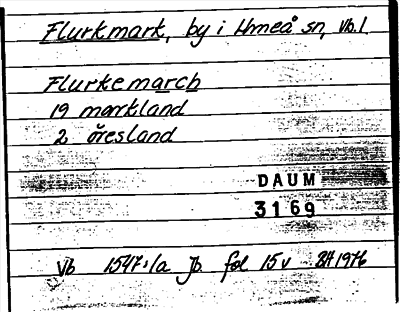 Flurkmark, by i Umeå sn, Vb.l
Flurkemarch
19 markland
2 öresland
DAUM
3169
Vb 1547:1a Jb. fol 15v BH 1976